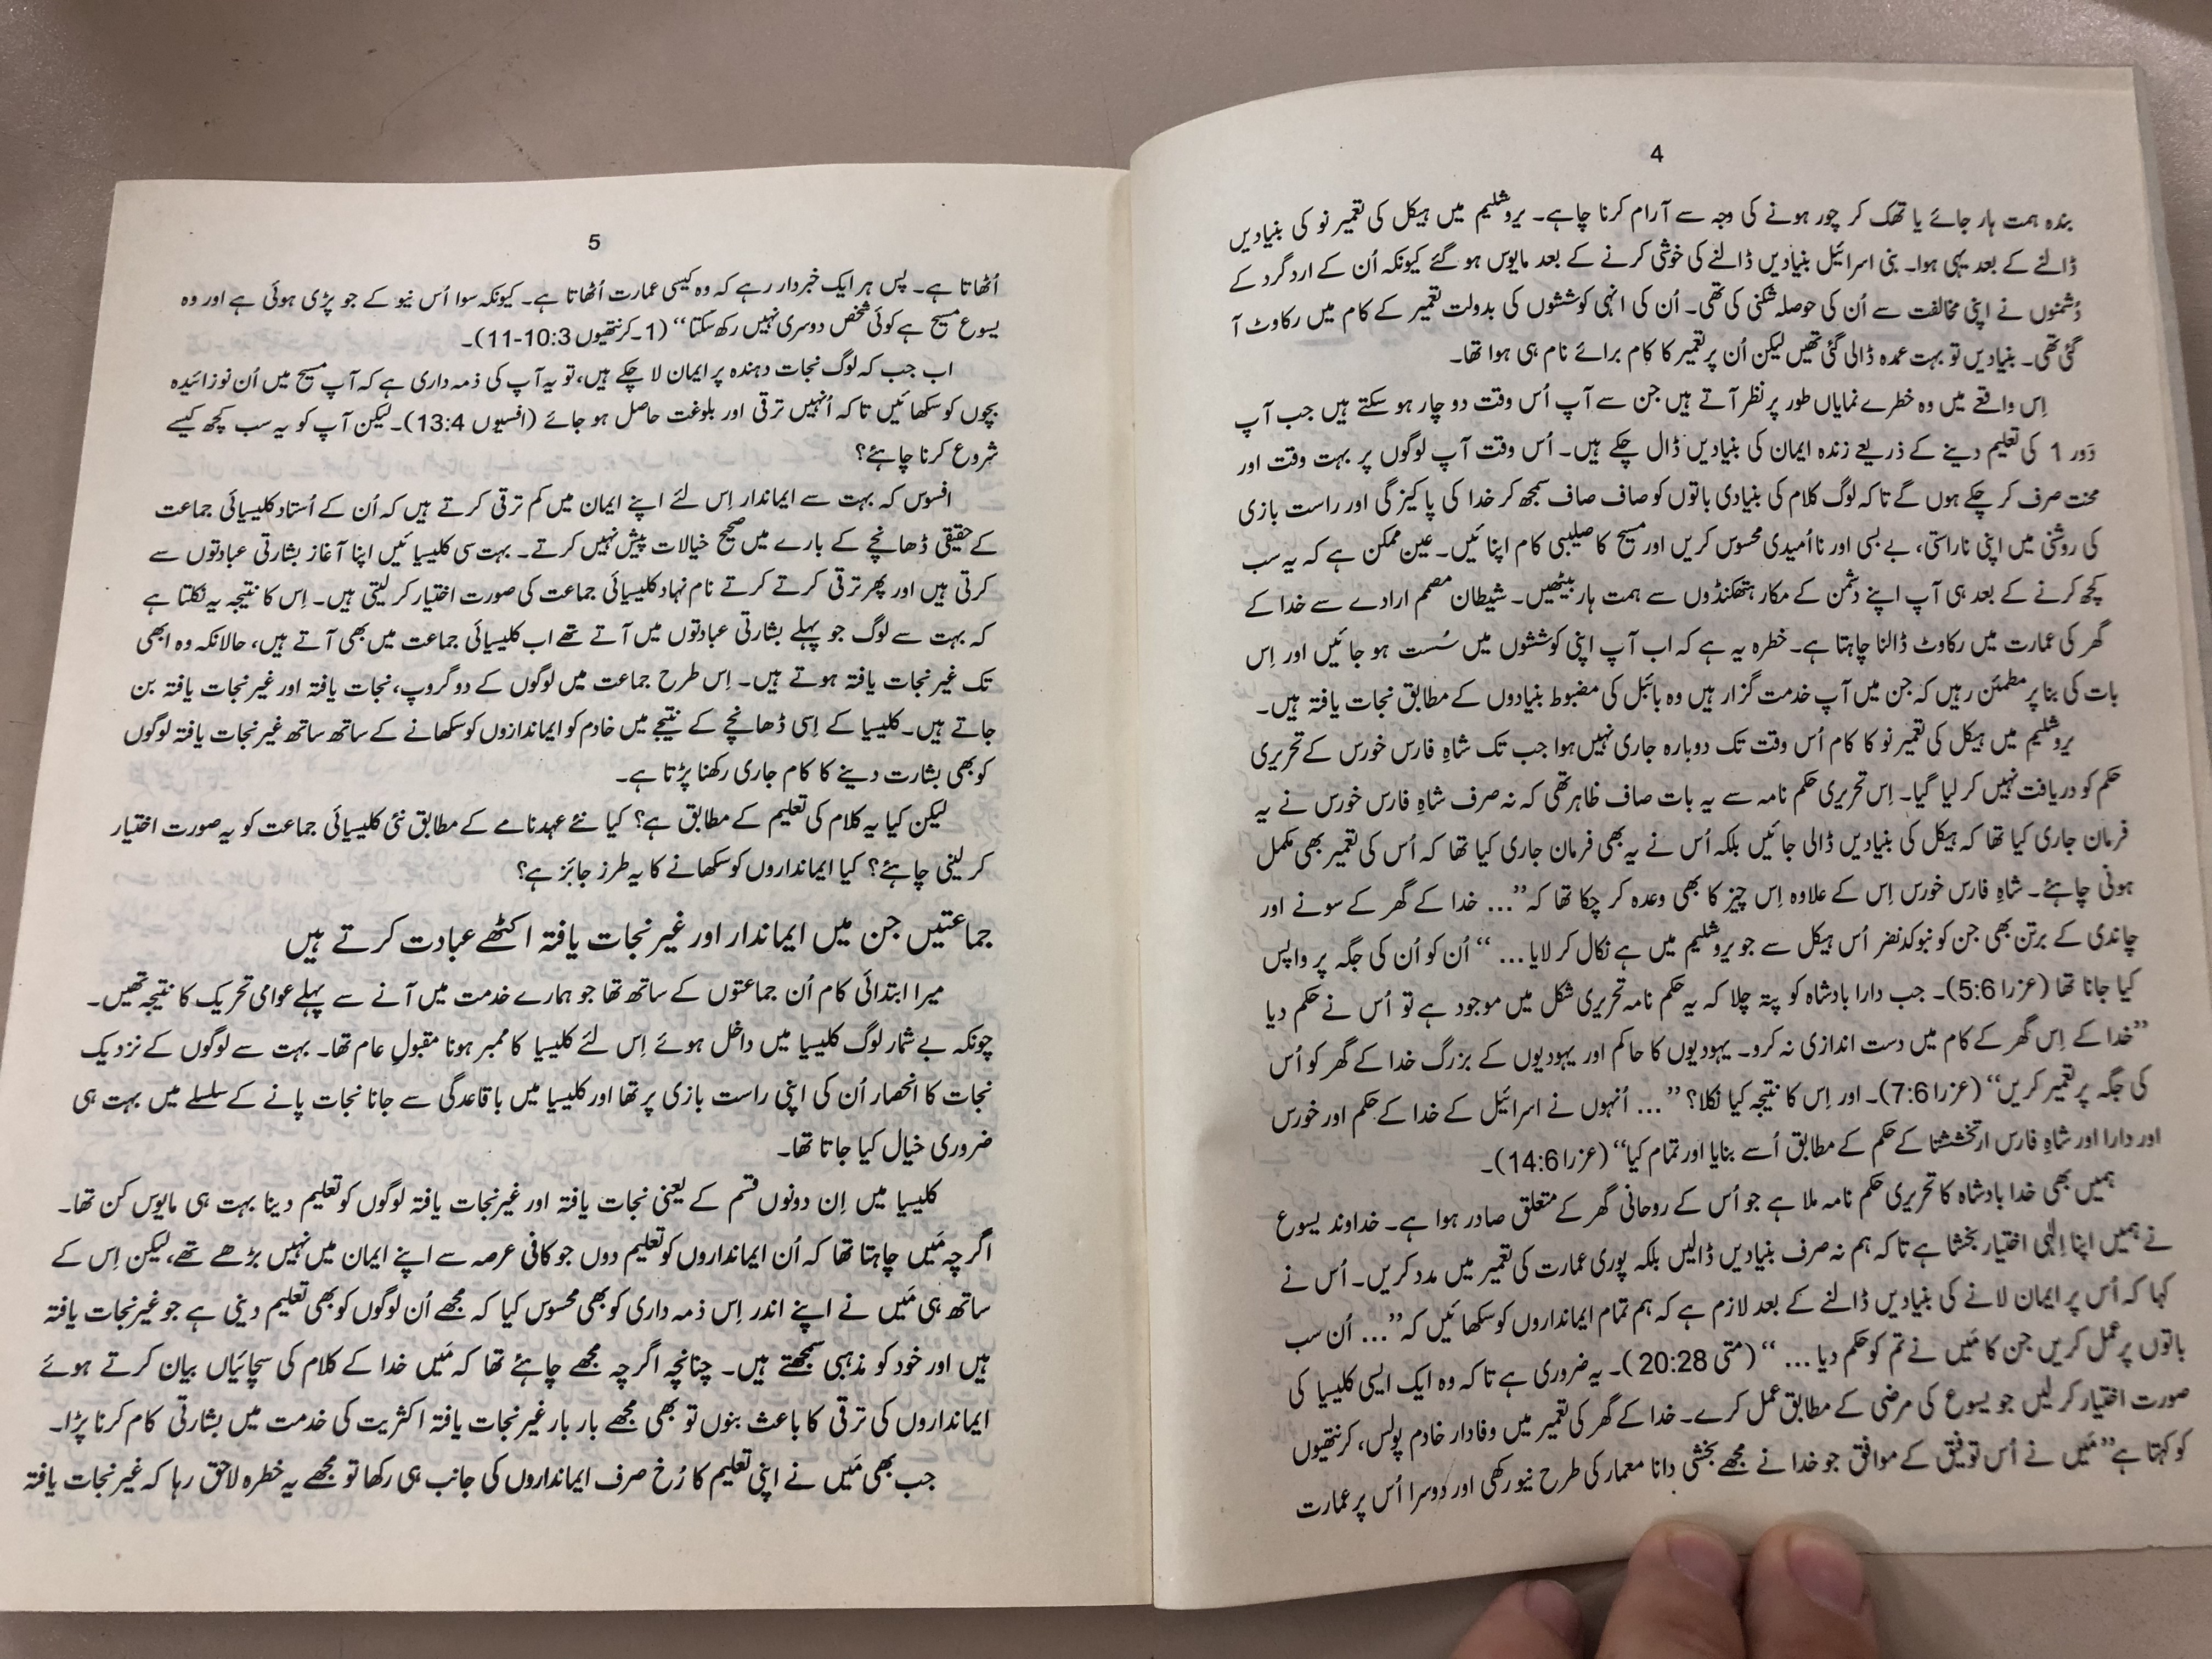 4
بندہ ہمت ہار جائے یا تھک کر چور ہونے کی وجہ سے آرام کرنا چاہے۔ یروشلیم میں ہیکل کی تعمیر نو کی بنیادیں
ڈالنے کے بعد یہی ہوا۔ بنی اسرائیل بنیادیں ڈالنے کی خوشی کرنے کے بعد مایوس ہو گئے کیونکہ اُن کے ارد گرد کے
دُشمنوں نے اپنی مخالفت سے اُن کی حوصلہ شکنی کی تھی۔ اُن کی انہی کوششوں کی بدولت تعمیر کے کام میں رکاوٹ آ
گئی تھی۔ بنیادیں تو بہت عمدہ ڈالی گئی تھیں لیکن اُن پر تعمیر کا کام برائے نام ہی ہوا تھا۔
اِس واقعے میں وہ خطرے نمایاں طور پر نظر آتے ہیں جن سے آپ اُس وقت دو چار ہو سکتے ہیں جب آپ
دَور 1 کی تعلیم دینے کے ذریعے زندہ ایمان کی بنیادیں ڈال چکے ہیں۔ اُس وقت آپ لوگوں پر بہت وقت اور
محنت صرف کر چکے ہوں گے تا کہ لوگ کلام کی بنیادی باتوں کو صاف صاف سمجھ کر خدا کی پاکیزگی اور راست بازی
کی روشنی میں اپنی ناراستی، بے بسی اور نا اُمیدی محسوس کریں اور مسیح کا صلیبی کام اپنائیں۔ عین ممکن ہے کہ یہ سب
کچھ کرنے کے بعد ہی آپ اپنے دشمن کے مکار ہتھکنڈوں سے ہمت ہار بیٹھیں۔ شیطان مصمم ارادے سے خدا کے
گھر کی عمارت میں رکاوٹ ڈالنا چاہتا ہے۔ خطرہ یہ ہے کہ اب آپ اپنی کوششوں میں سُست ہو جائیں اور اِس
بات کی بنا پر مطمئن رہیں کہ جن میں آپ خدمت گزار ہیں وہ بائبل کی مضبوط بنیادوں کے مطابق نجات یافتہ ہیں۔
یروشلیم میں ہیکل کی تعمیر نو کا کام اُس وقت تک دوبارہ جاری نہیں ہوا جب تک شاہِ فارس خورس کے تحریری
حکم کو دریافت نہیں کر لیا گیا۔ اِس تحریری حکم نامہ سے یہ بات صاف ظاہر تھی کہ نہ صرف شاہِ فارس خورس نے یہ
فرمان جاری کیا تھا کہ ہیکل کی بنیادیں ڈالی جائیں بلکہ اُس نے یہ بھی فرمان جاری کیا تھا کہ اُس کی تعمیر بھی مکمل
ہونی چاہئے۔ شاہِ فارس خورس اِس کے علاوہ اِس چیز کا بھی وعدہ کر چکا تھا کہ ”... خدا کے گھر کے سونے اور
چاندی کے برتن بھی جن کو نبوکدنضر اُس ہیکل سے جو یروشلیم میں ہے نکال کر لایا... “ اُن کو اُن کی جگہ پر واپس
کیا جانا تھا (عزرا 5:6)۔ جب دارا بادشاہ کو پتہ چلا کہ یہ حکم نامہ تحریری شکل میں موجود ہے تو اُس نے حکم دیا
”خدا کے اِس گھر کے کام میں دست اندازی نہ کرو۔ یہودیوں کا حاکم اور یہودیوں کے بزرگ خدا کے گھر کو اُس
کی جگہ پر تعمیر کریں“ (عزرا 7:6)۔ اور اِس کا نتیجہ کیا نکلا؟ ”... اُنہوں نے اسرائیل کے خدا کے حکم اور خورس
اور دارا اور شاہِ فارس ارتخششتا کے حکم کے مطابق اُسے بنایا اور تمام کیا“ (عزرا 14:6)۔
ہمیں بھی خدا بادشاہ کا تحریری حکم نامہ ملا ہے جو اُس کے روحانی گھر کے متعلق صادر ہوا ہے۔ خداوند یسوع
نے ہمیں اپنا اِلٰہی اختیار بخشا ہے تا کہ ہم نہ صرف بنیادیں ڈالیں بلکہ پوری عمارت کی تعمیر میں مدد کریں۔ اُس نے
کہا کہ اُس پر ایمان لانے کی بنیادیں ڈالنے کے بعد لازم ہے کہ ہم تمام ایمانداروں کو سکھائیں کہ ”... اُن سب
باتوں پر عمل کریں جن کا مَیں نے تم کو حکم دیا ... “ (متی 20:28)۔ یہ ضروری ہے تا کہ وہ ایک ایسی کلیسیا کی
صورت اختیار کر لیں جو یسوع کی مرضی کے مطابق عمل کرے۔ خدا کے گھر کی تعمیر میں وفادار خادم پولس، کرنتھیوں
کو کہتا ہے ”مَیں نے اُس توفیق کے موافق جو خدا نے مجھے بخشی دانا معمار کی طرح نیو رکھی اور دوسرا اُس پر عمارت
5
اُٹھاتا ہے۔ پس ہر ایک خبردار رہے کہ وہ کیسی عمارت اُٹھاتا ہے۔ کیونکہ سوا اُس نیو کے جو پڑی ہوئی ہے اور وہ
یسوع مسیح ہے کوئی شخص دوسری نہیں رکھ سکتا“ (1۔کرنتھیوں 10:3-11)۔
اب جب کہ لوگ نجات دہندہ پر ایمان لا چکے ہیں، تو یہ آپ کی ذمہ داری ہے کہ آپ مسیح میں اُن نوزائیدہ
بچوں کو سکھائیں تا کہ اُنہیں ترقی اور بلوغت حاصل ہو جائے (افسیوں 13:4)۔ لیکن آپ کو یہ سب کچھ کیسے
شروع کرنا چاہئے؟
افسوس کہ بہت سے ایماندار اِس لئے اپنے ایمان میں کم ترقی کرتے ہیں کہ اُن کے اُستاد کلیسیائی جماعت
کے حقیقی ڈھانچے کے بارے میں صحیح خیالات پیش نہیں کرتے۔ بہت سی کلیسیائیں اپنا آغاز بشارتی عبادتوں سے
کرتی ہیں اور پھر ترقی کرتے کرتے نام نہاد کلیسیائی جماعت کی صورت اختیار کر لیتی ہیں۔ اِس کا نتیجہ یہ نکلتا ہے
کہ بہت سے لوگ جو پہلے بشارتی عبادتوں میں آتے تھے اب کلیسیائی جماعت میں بھی آتے ہیں، حالانکہ وہ ابھی
تک غیر نجات یافتہ ہوتے ہیں۔ اِس طرح جماعت میں لوگوں کے دو گروپ، نجات یافتہ اور غیر نجات یافتہ بن
جاتے ہیں۔ کلیسیا کے اِسی ڈھانچے کے نتیجے میں خادم کو ایماندازوں کو سکھانے کے ساتھ ساتھ غیر نجات یافتہ لوگوں
کو بھی بشارت دینے کا کام جاری رکھنا پڑتا ہے۔
لیکن کیا یہ کلام کی تعلیم کے مطابق ہے؟ کیا نئے عہدنامے کے مطابق نئی کلیسیائی جماعت کو یہ صورت اختیار
کر لینی چاہئے؟ کیا ایمانداروں کو سکھانے کا یہ طرز جائز ہے؟
جماعتیں جن میں ایماندار اور غیر نجات یافتہ اکٹھے عبادت کرتے ہیں
میرا ابتدائی کام اُن جماعتوں کے ساتھ تھا جو ہمارے خدمت میں آنے سے پہلے عوامی تحریک کا نتیجہ تھیں۔
چونکہ بے شمار لوگ کلیسیا میں داخل ہوئے اِس لئے کلیسیا کا ممبر ہونا مقبولِ عام تھا۔ بہت سے لوگوں کے نزدیک
نجات کا انحصار اُن کی اپنی راست بازی پر تھا اور کلیسیا میں باقاعدگی سے جانا نجات پانے کے سلسلے میں بہت ہی
ضروری خیال کیا جاتا تھا۔
کلیسیا میں اِن دونوں قسم کے یعنی نجات یافتہ اور غیر نجات یافتہ لوگوں کو تعلیم دینا بہت ہی مایوس کن تھا۔
اگرچہ مَیں چاہتا تھا کہ اُن ایمانداروں کو تعلیم دوں جو کافی عرصہ سے اپنے ایمان میں نہیں بڑھے تھے، لیکن اِس کے
ساتھ ہی مَیں نے اپنے اندر اِس ذمہ داری کو بھی محسوس کیا کہ مجھے اُن لوگوں کو بھی تعلیم دینی ہے جو غیر نجات یافتہ
ہیں اور خود کو مذہبی سمجھتے ہیں۔ چنانچہ اگرچہ مجھے چاہئے تھا کہ مَیں خدا کے کلام کی سچائیاں بیان کرتے ہوئے
ایمانداروں کی ترقی کا باعث بنوں تو بھی مجھے بار بار غیر نجات یافتہ اکثریت کی خدمت میں بشارتی کام کرنا پڑا۔
جب بھی مَیں نے اپنی تعلیم کا رُخ صرف ایمانداروں کی جانب ہی رکھا تو مجھے یہ خطرہ لاحق رہا کہ غیر نجات یافتہ